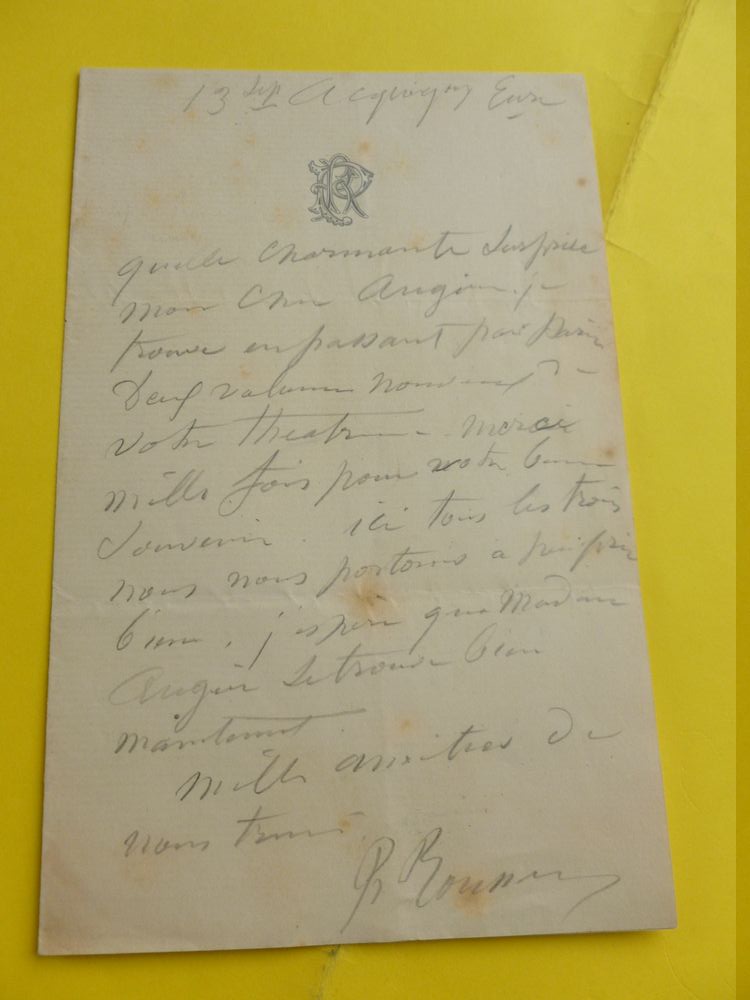 13 Sep Acquigny Eure
PR
quelle charmante surprise
mon cher Augier. je
trouve en passant par Paris
Deux volumes nouveaux de
votre theatre. merci
mille fois pour votre bon
souvenir. ici tous les trois
nous nous portons à
bien. j'espère que Madame
Augier se trouve bien
maintenant.
Mille amitiés de
nous trois.
Ph Rousseau